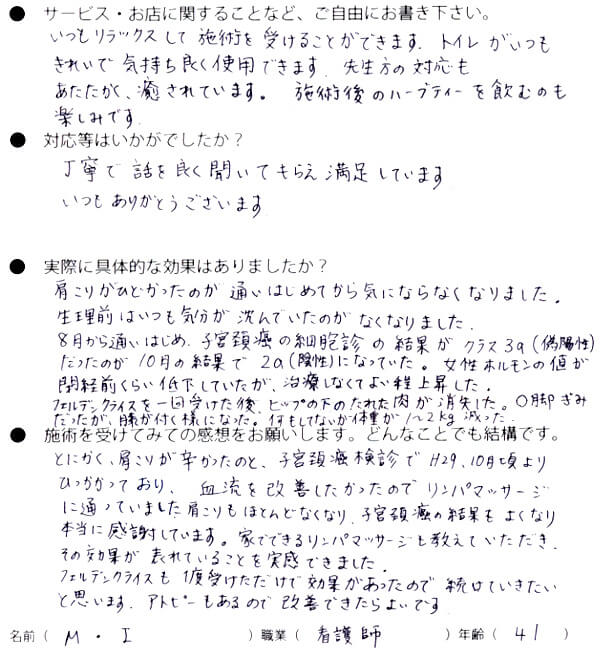 ● サービス・お店に関することなど、ご自由にお書き下さい。
いつもリラックスして施術を受けることができます。トイレがいつも
きれいで気持ち良く使用できます。先生方の対応も
あたたかく、癒されています。 施術後のハーブティーを飲むのも
楽しみです。
● 対応等はいかがでしたか？
丁寧で話を良く聞いてもらえ満足しています
いつもありがとうございます
● 実際に具体的な効果はありましたか？
肩こりがひどかったのが通いはじめてから気にならなくなりました。
生理前はいつも気分が沈んでいたのがなくなりました。
8月から通いはじめ、子宮頚癌の細胞診の結果がクラス3a(偽陽性)
だったのが10月の結果で2a(陰性)になっていた。女性ホルモンの値が
閉経前くらい低下していたが、治療しなくてよい程上昇した。
フェルデンクライスを一回受けた後、ヒップの下のたれた肉が消失した。〇脚ぎみ
だったが、膝が付く様になった。何もしてないが体重が1〜2kg減った。
● 施術を受けてみての感想をお願いします。どんなことでも結構です。
とにかく、肩こりが辛かったのと、子宮頚癌検診でH29、10月頃より
ひっかかっており、 血流を改善したかったのでリンパマッサージ
に通っていました。肩こりもほとんどなくなり、子宮頚癌の結果もよくなり
本当に感謝しています。家でできるリンパマッサージも教えていただき、
その効果が表れていることを実感できました。
フェルデンクライスも1度受けただけで効果があったので続けていきたい
と思います。アトピーもあるので改善できたらよいです
名前（ M・I ）職業（ 看護師 ）年齢（ 41 ）